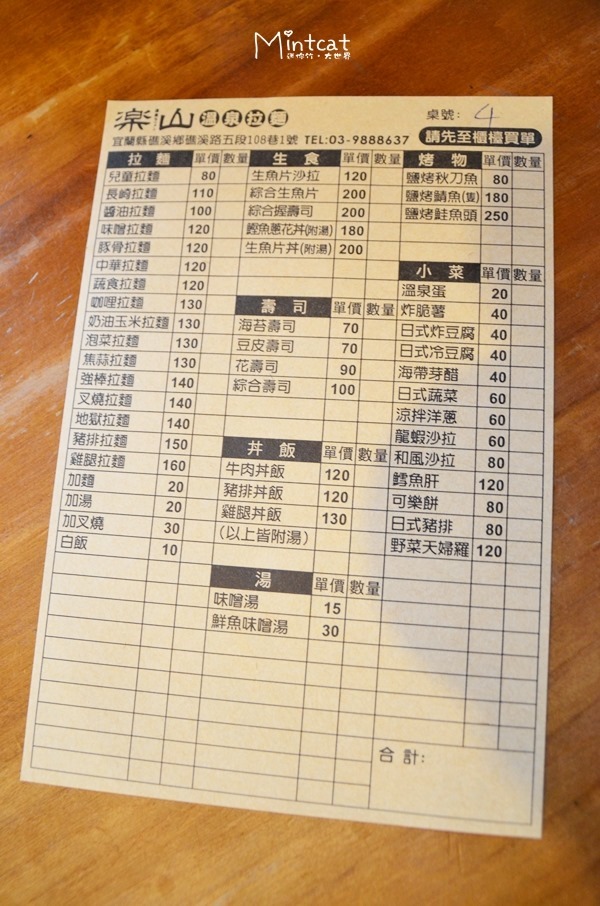 Mintcat
迷你竹。大世界
楽山 溫泉拉麵
桌號: 4
宜蘭縣礁溪鄉礁溪路五段108巷1號 TEL:03-9888637
請先至櫃檯買單
拉麵 單價 數量
兒童拉麵 80
長崎拉麵 110
醬油拉麵 100
味噌拉麵 120
豚骨拉麵 120
中華拉麵 120
蔬食拉麵 120
咖哩拉麵 130
奶油玉米拉麵 130
泡菜拉麵 130
焦蒜拉麵 130
強棒拉麵 140
叉燒拉麵 140
地獄拉麵 140
豬排拉麵 150
雞腿拉麵 160
加麵 20
加湯 20
加叉燒 30
白飯 10
生食 單價 數量
生魚片沙拉 120
綜合生魚片 200
綜合握壽司 200
鰹魚蔥花丼(附湯) 180
生魚片丼(附湯) 200
壽司 單價 數量
海苔壽司 70
豆皮壽司 70
花壽司 90
綜合壽司 100
丼飯 單價 數量
牛肉丼飯 120
豬排丼飯 120
雞腿丼飯 130
(以上皆附湯)
湯 單價 數量
味噌湯 15
鮮魚味噌湯 30
烤物 單價 數量
鹽烤秋刀魚 80
鹽烤鯖魚(隻) 180
鹽烤鮭魚頭 250
小菜 單價 數量
溫泉蛋 20
炸脆薯 40
日式炸豆腐 40
日式冷豆腐 40
海帶芽醋 40
日式蔬菜 60
涼拌洋蔥 60
龍蝦沙拉 60
和風沙拉 80
鱈魚肝 120
可樂餅 80
日式豬排 80
野菜天婦羅 120
合計: